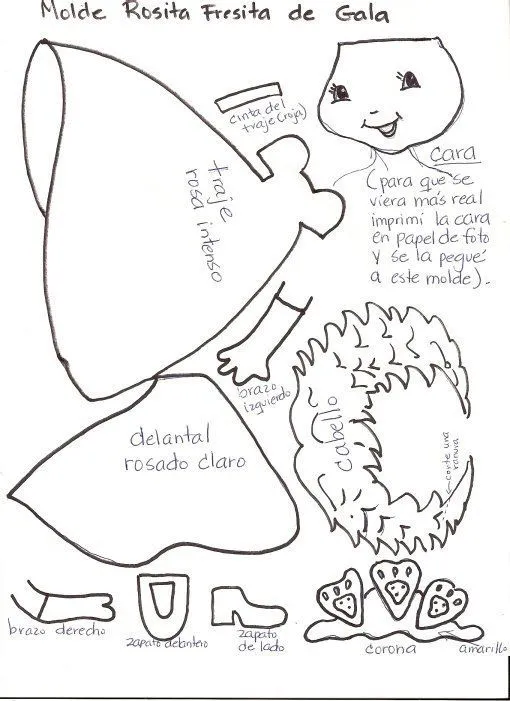 Molde Rosita Fresita de Gala
cinta del
traje (roja)
traje
rosa intenso
cara
(para que se
viera más real
imprimi la cara
en papel de foto
y se la pegué
a este molde).
brazo
izquierdo
cabello
corte una
ranura
delantal
rosado claro
brazo derecho
zapato delantero
zapato
de lado
corona
amarillo